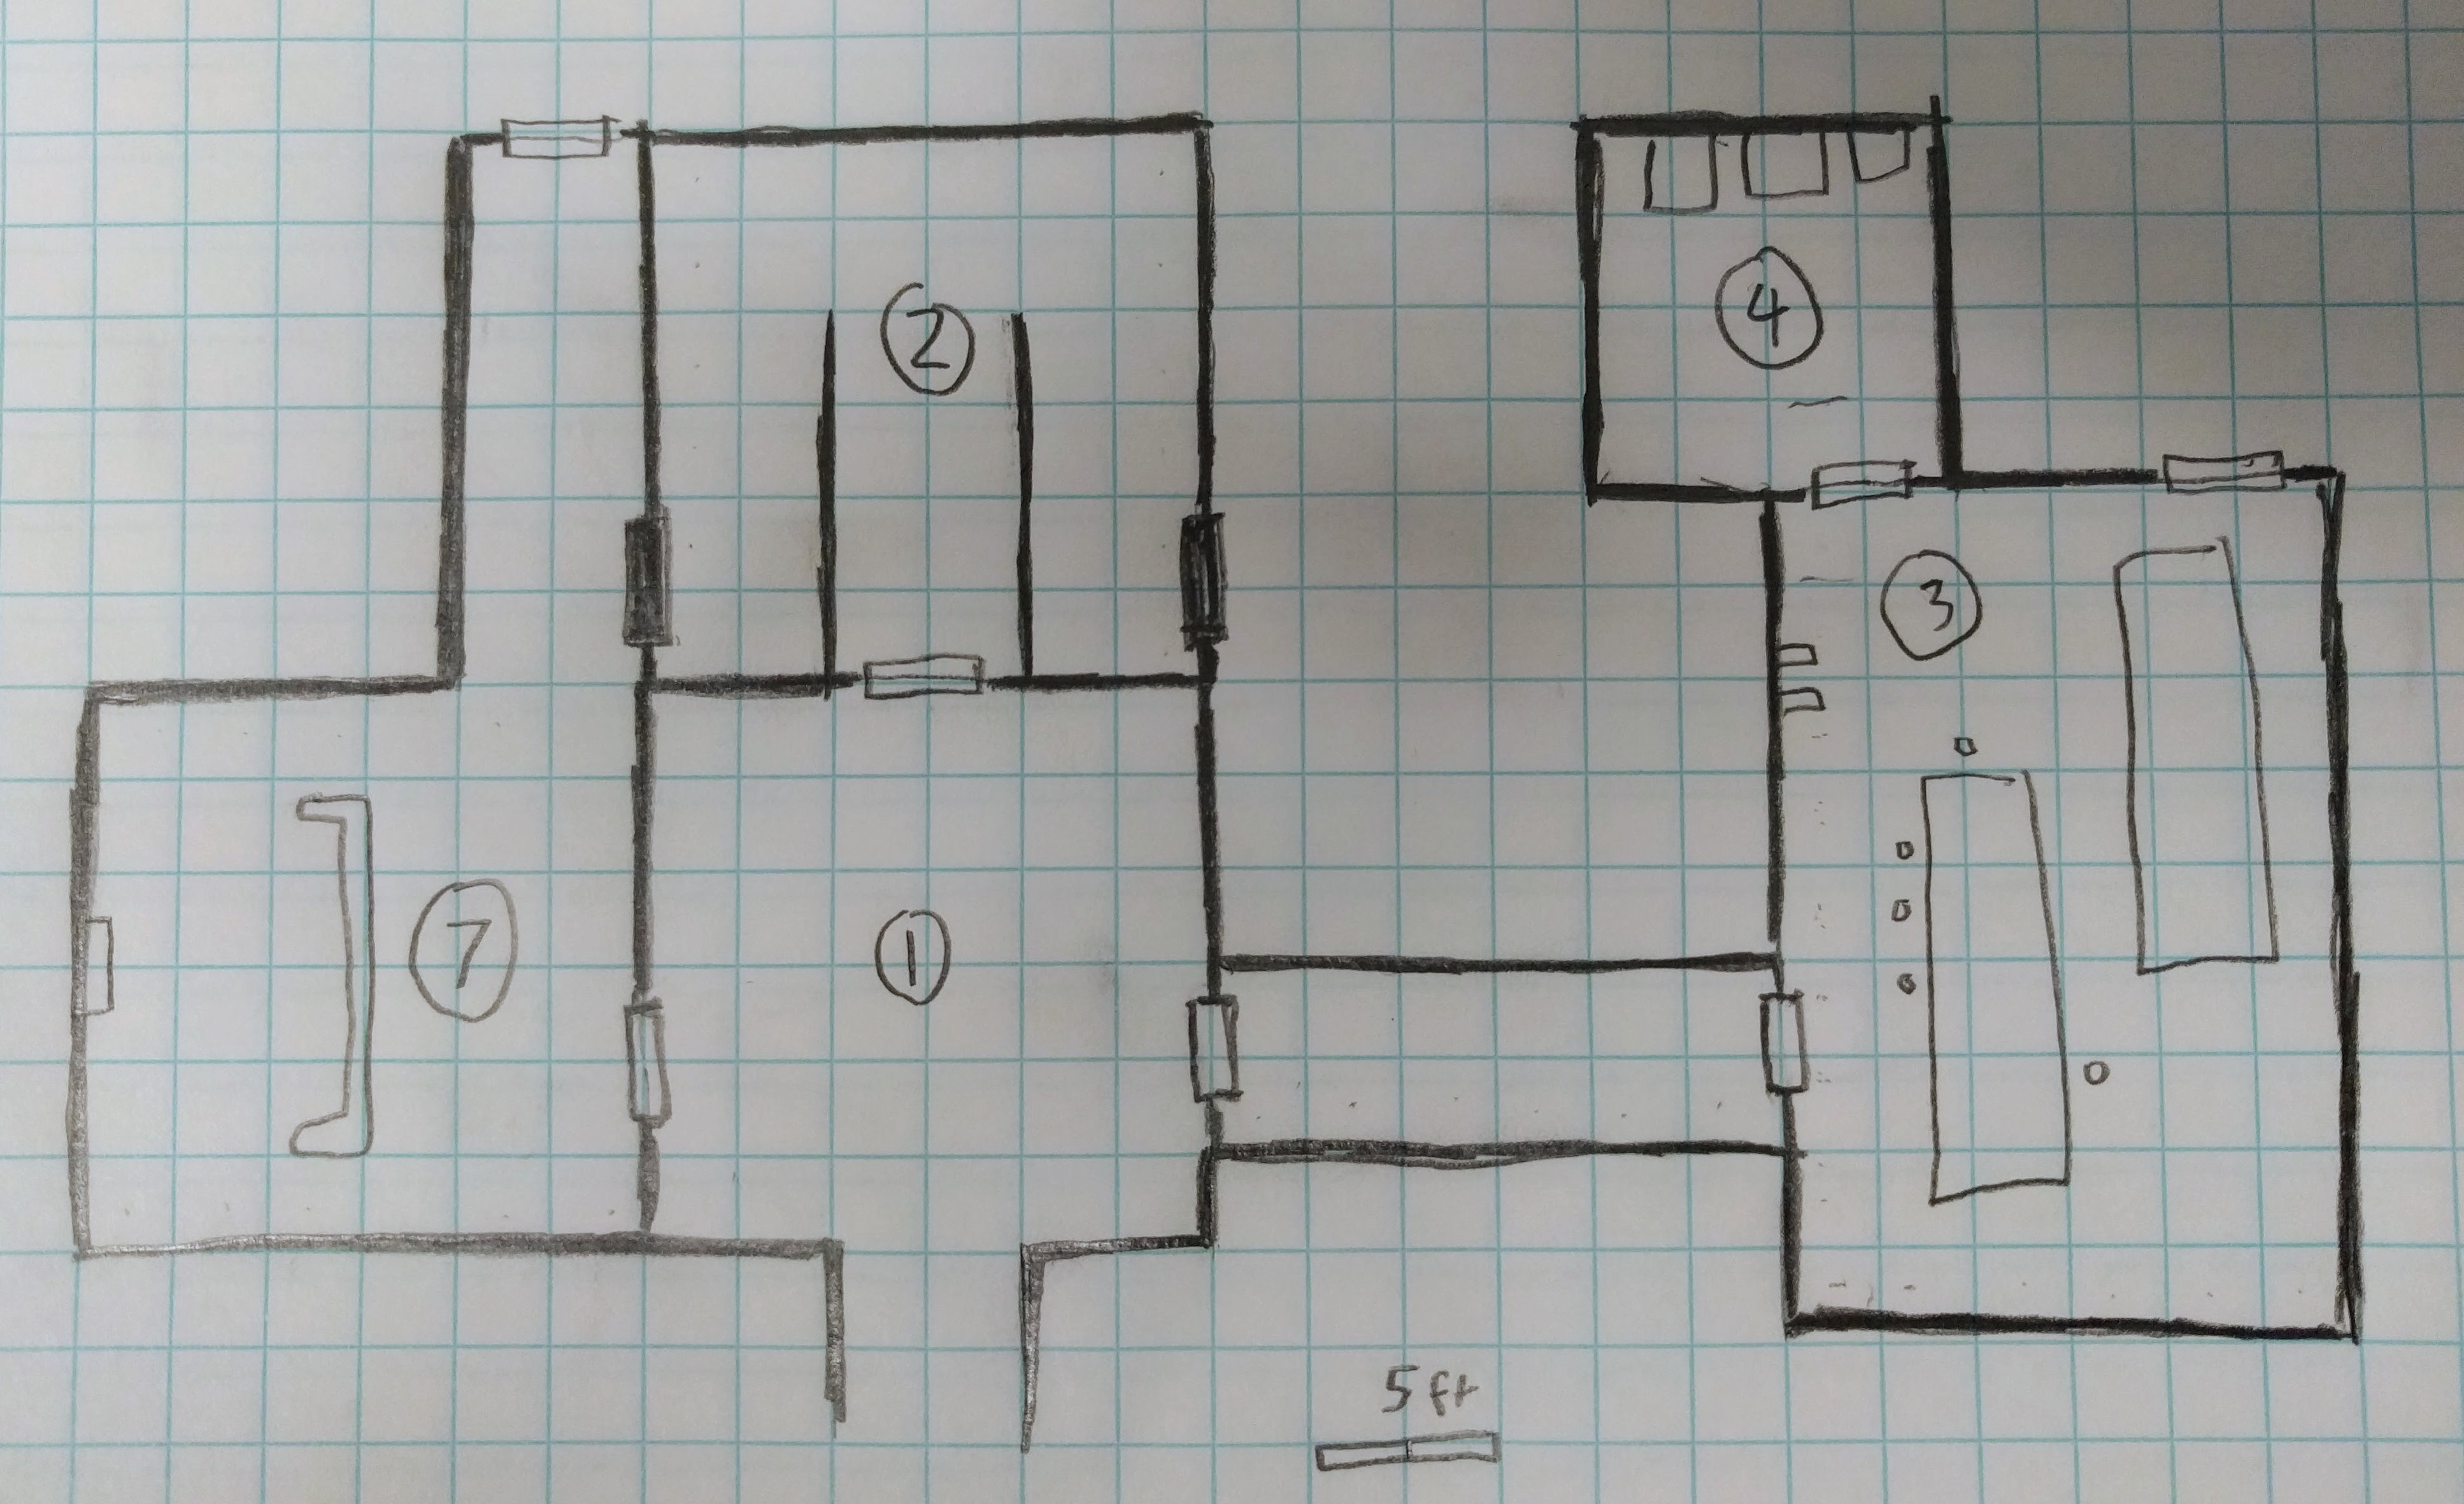 2
4
3
7
1
5 ft